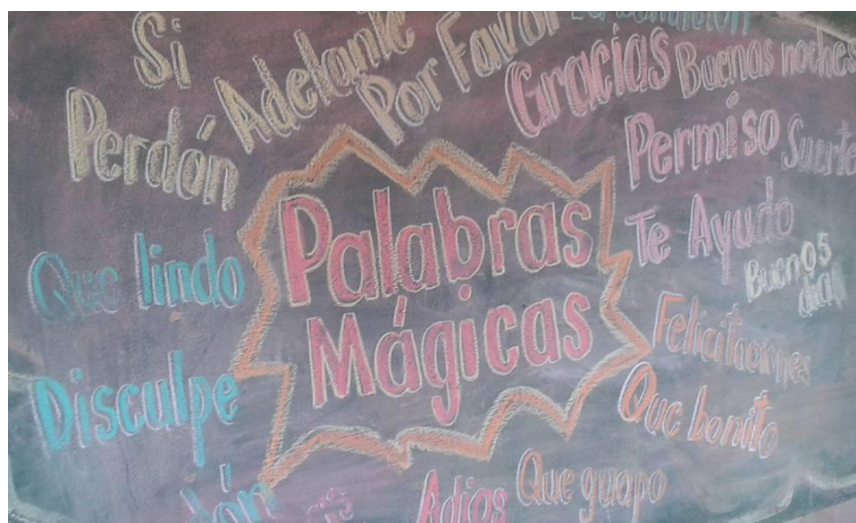 Si
Adelante
Por Favor
Gracias
Buenas noches
Perdón
Permiso
Suerte
Palabras
Mágicas
Te Ayudo
Buenos
dias
Que lindo
Felicitaciones
Disculpe
Que bonito
Adios
Que guapo